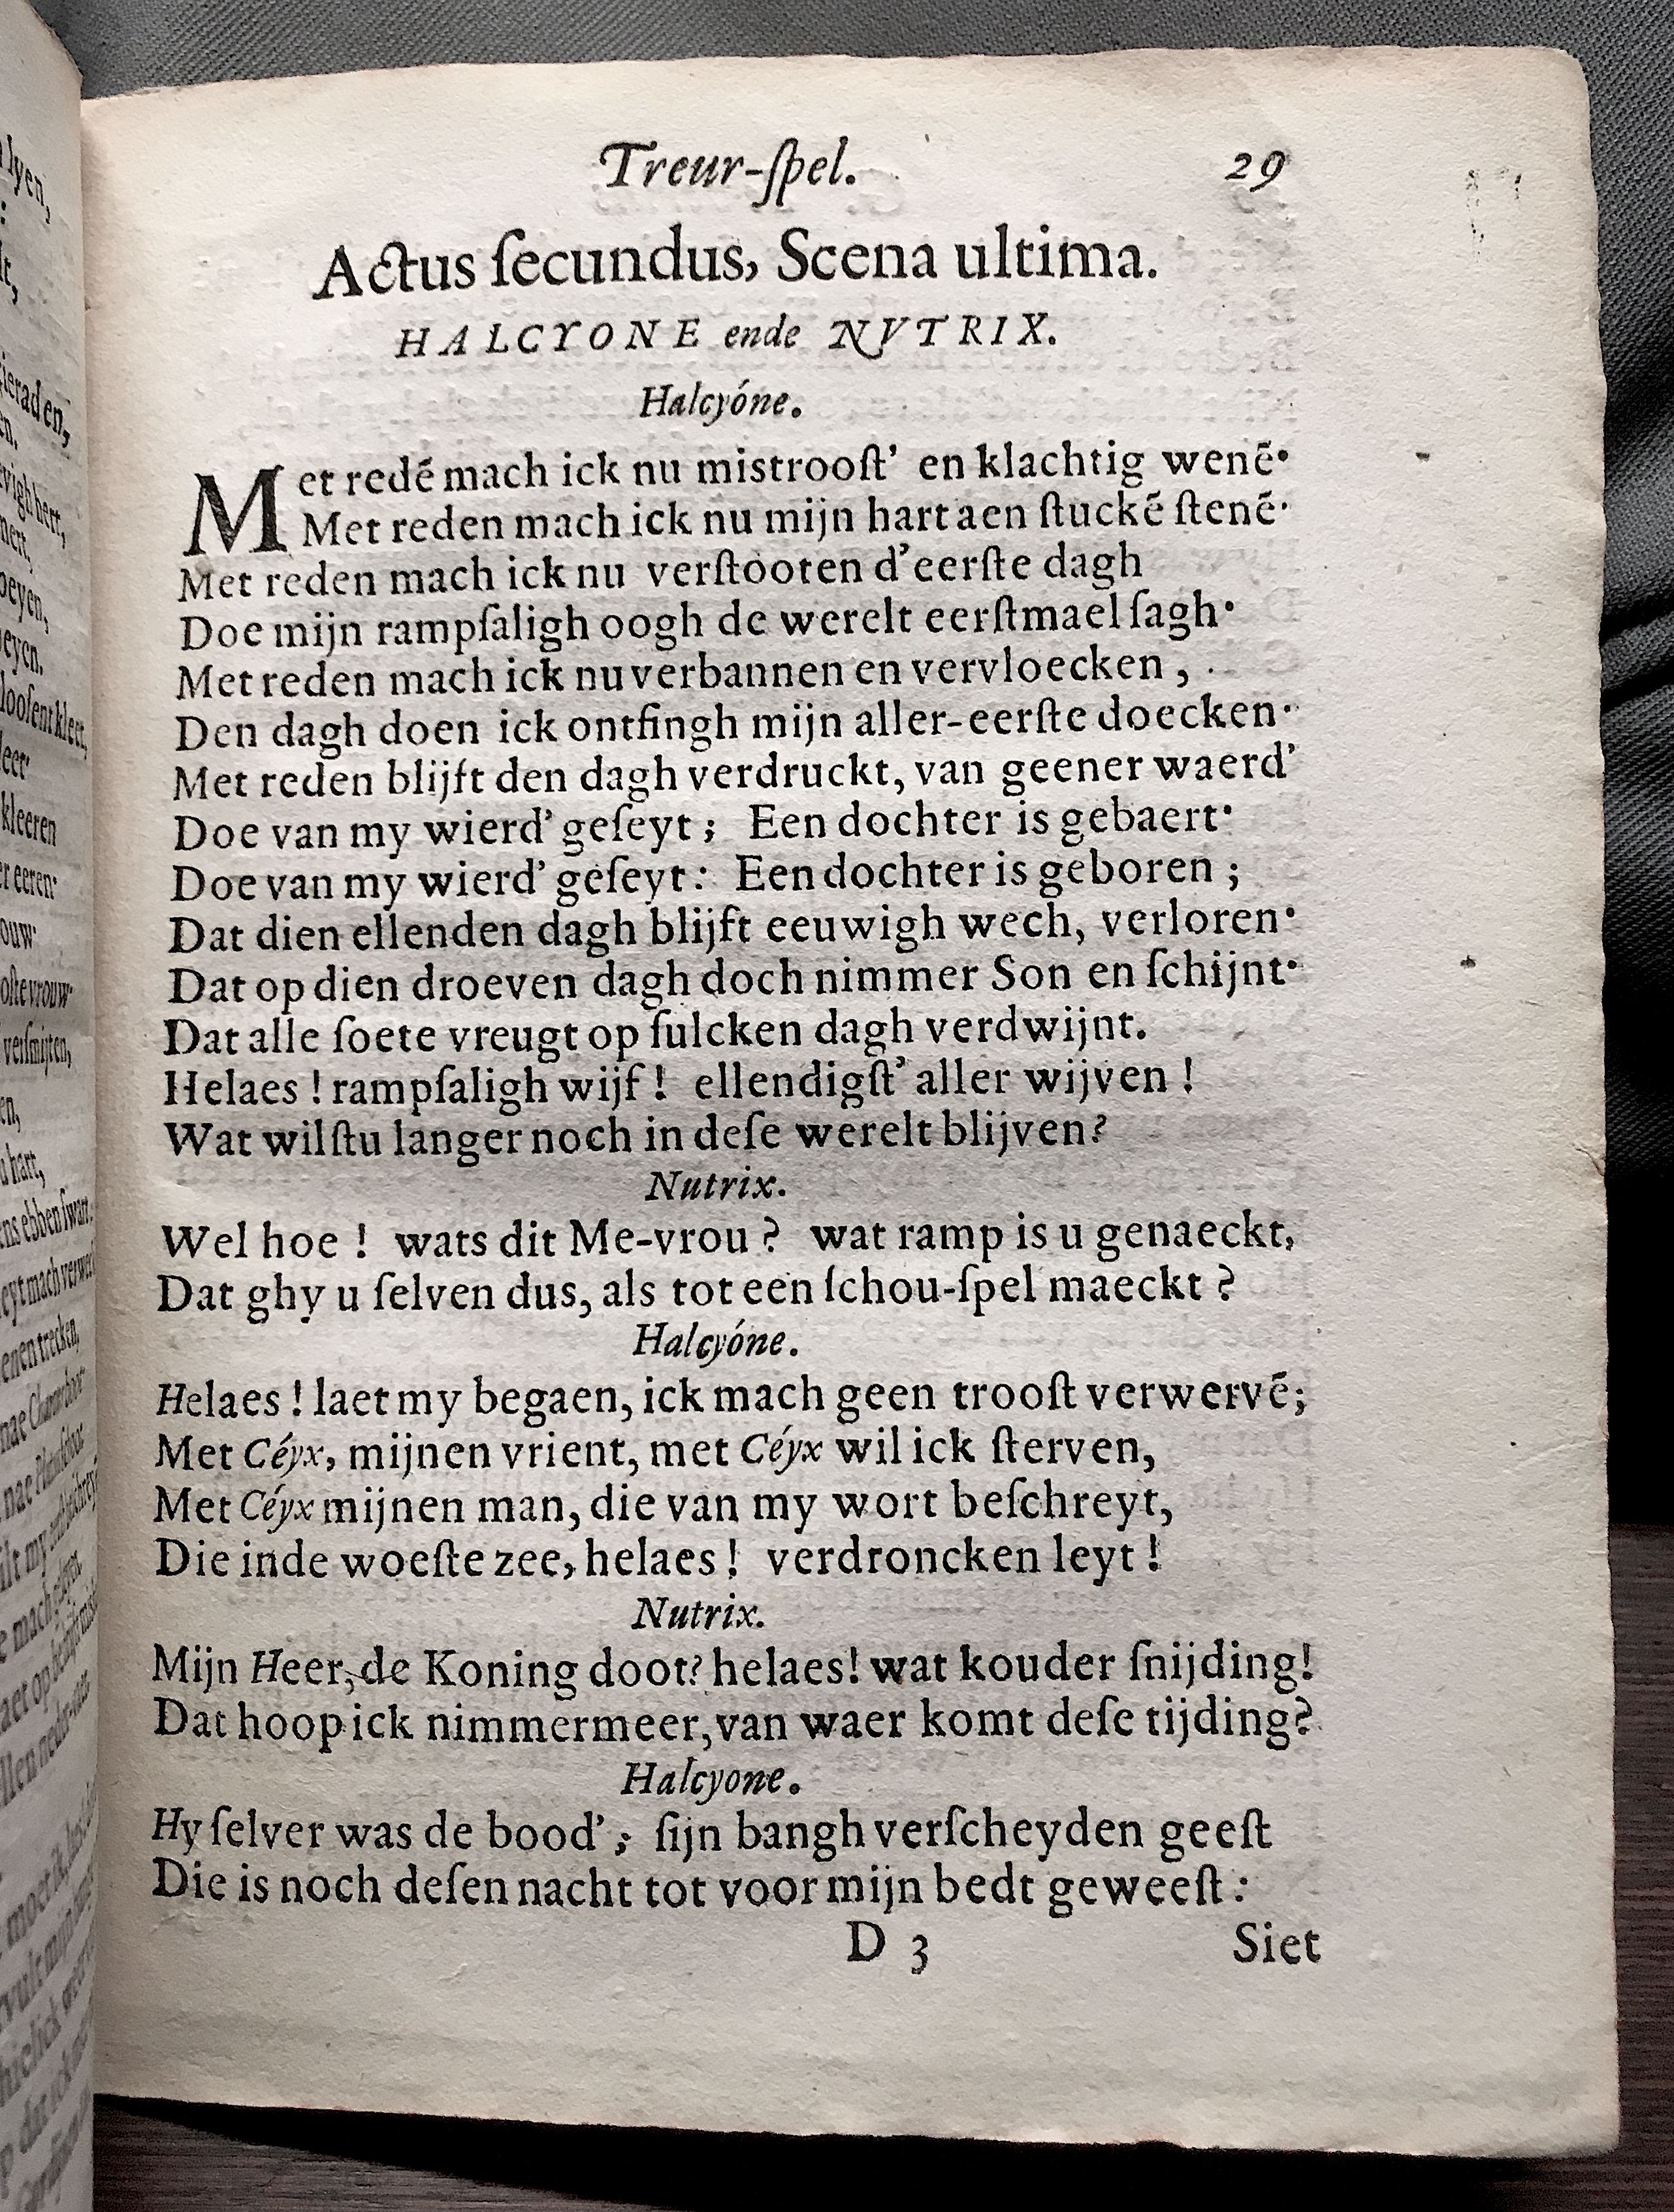 Treur-ſpel. 29
Actus ſecundus, Scena ultima.
HALCYONE ende NVTRIX.
Halcyóne.
Met redẽ mach ick nu mistrooſt’ en klachtig wenẽ·
Met reden mach ick nu mijn hart aen ſtuckẽ ſtenẽ·
Met reden mach ick nu verſtooten d’eerſte dagh
Doe mijn rampſaligh oogh de werelt eerſtmael ſagh·
Met reden mach ick nu verbannen en vervloecken,
Den dagh doen ick ontfingh mijn aller-eerſte doecken·
Met reden blijft den dagh verdruckt, van geener waerd’
Doe van my wierd’ geſeyt; Een dochter is gebaert·
Doe van my wierd’ geſeyt: Een dochter is geboren;
Dat dien ellenden dagh blijft eeuwigh wech, verloren·
Dat op dien droeven dagh doch nimmer Son en ſchijnt·
Dat alle ſoete vreugt op ſulcken dagh verdwijnt.
Helaes! rampſaligh wijf! ellendigſt’ aller wijven!
Wat wilſtu langer noch in deſe werelt blijven?
Nutrix.
Wel hoe! wats dit Me-vrou? wat ramp is u genaeckt,
Dat ghy u ſelven dus, als tot een ſchou-ſpel maeckt?
Halcyóne.
Helaes! laet my begaen, ick mach geen trooſt verwervẽ;
Met Céyx, mijnen vrient, met Céyx wil ick ſterven,
Met Céyx mijnen man, die van my wort beſchreyt,
Die inde woeſte zee, helaes! verdroncken leyt!
Nutrix.
Mijn Heer, de Koning doot? helaes! wat kouder ſnijding!
Dat hoop ick nimmermeer, van waer komt deſe tijding?
Halcyone.
Hy ſelver was de bood’; ſijn bangh verſcheyden geeſt
Die is noch deſen nacht tot voor mijn bedt geweeſt:
D 3 Siet